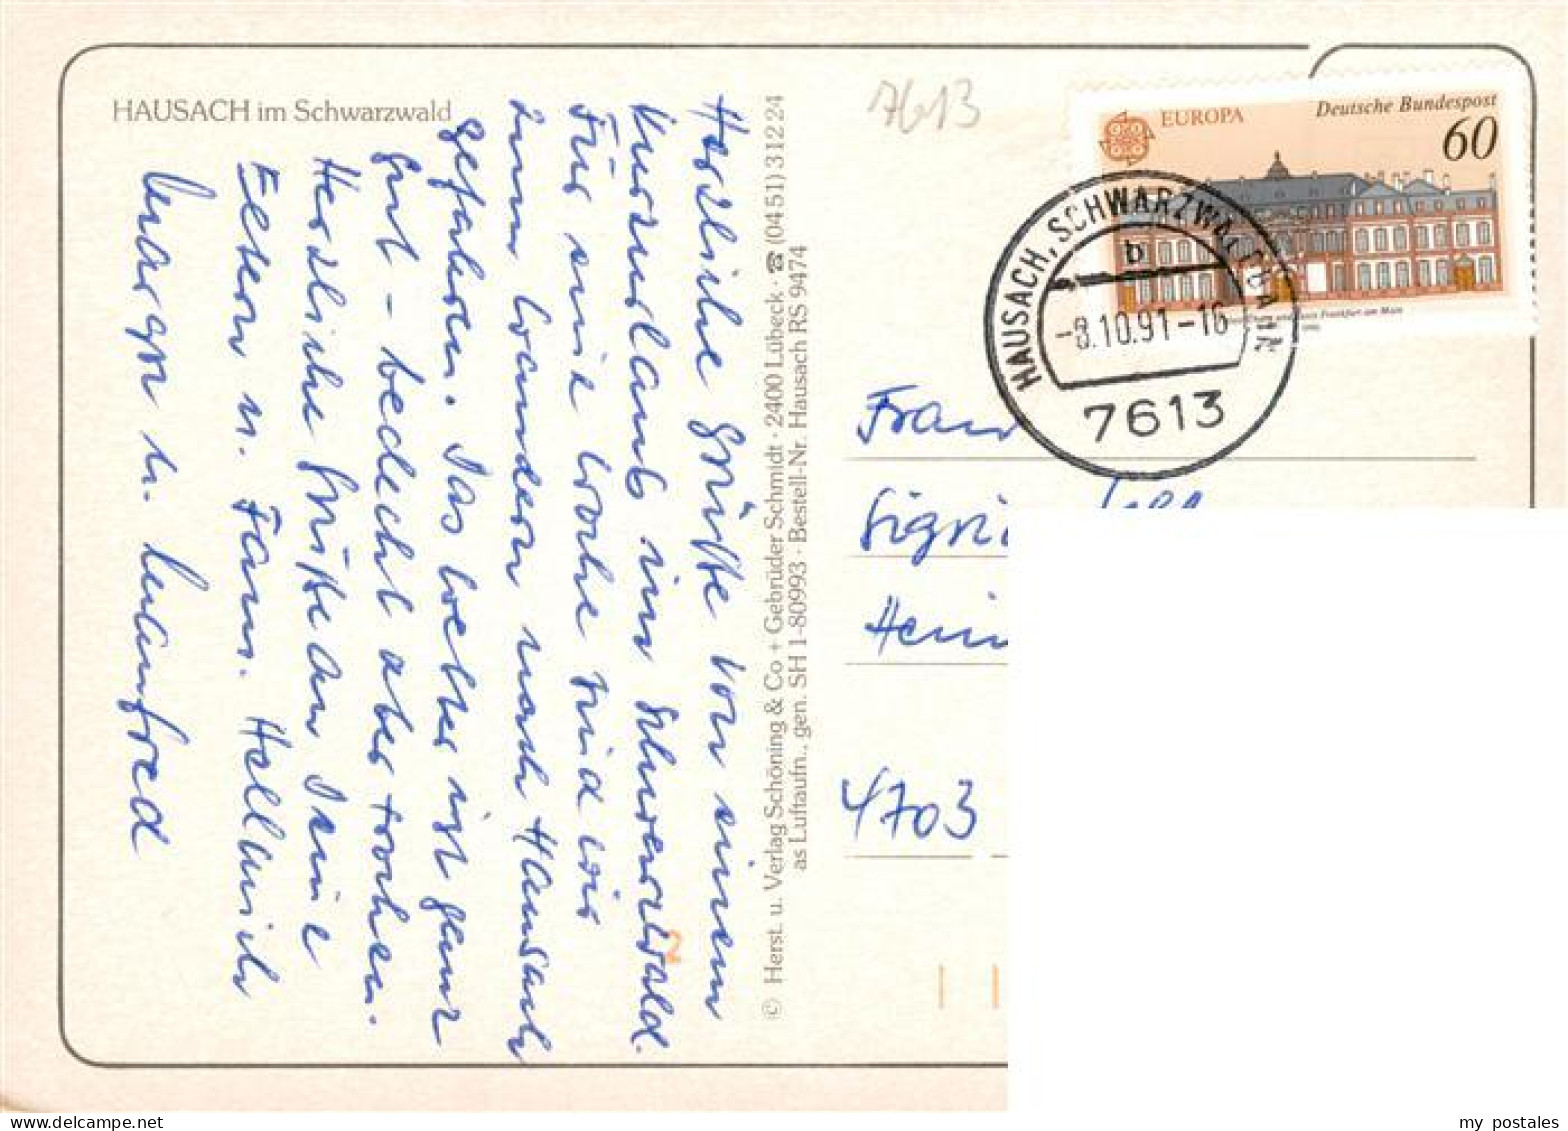 HAUSACH im Schwarzwald
Herzliche Grüße von einem
Kurzurlaub im Schwarzwald.
Für eine Woche sind wir
zum Wandern nach Hausach
gefahren. Das Wetter ist ganz
gut – bedeckt aber trocken.
Herzliche Grüße an Deine
Eltern u. Fam. Hellmich
Margot u. Manfred
© Herst. u. Verlag Schöning & Co + Gebrüder Schmidt · 2400 Lübeck · ☎ (04 51) 3 12 24
as Luftaufn., gen. SH 1-80993 · Bestell-Nr. Hausach RS 9474
7613
EUROPA
Deutsche Bundespost
60
Frankfurt am Main
HAUSACH, SCHWARZWALDBAHN
b
-8.10.91-16
7613
Frau
Sigri
Hein
4703
my postales